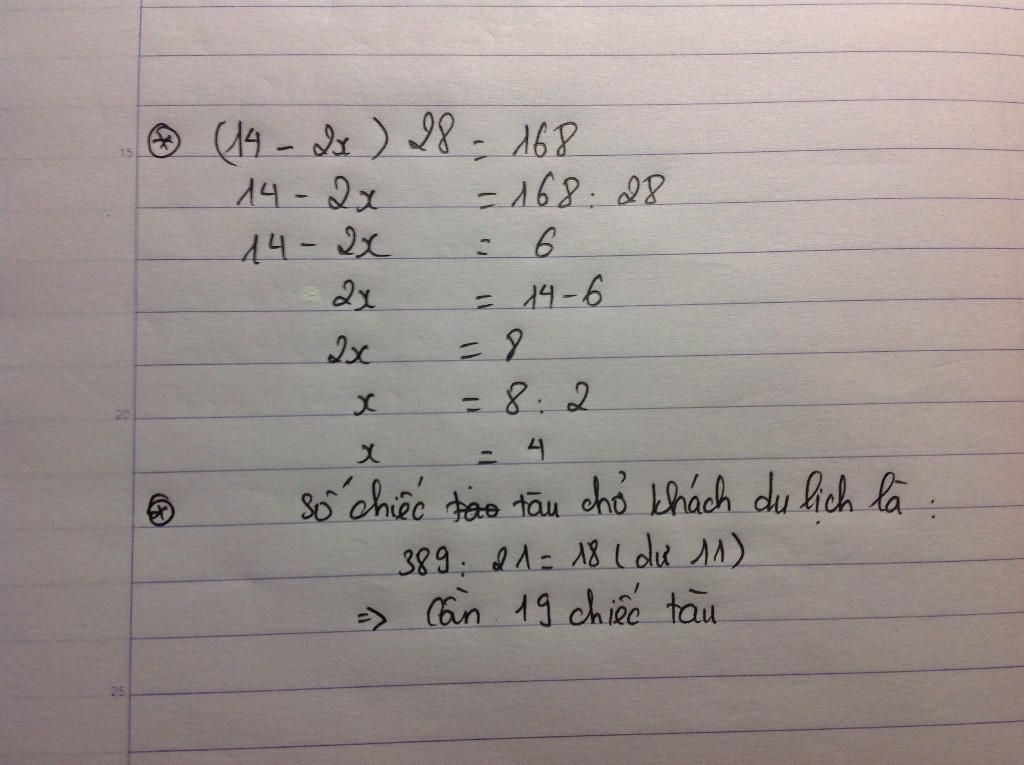 15
⊛ (14 - 2x) 28 = 168
14 - 2x = 168 : 28
14 - 2x = 6
2x = 14 - 6
2x = 8
20
x = 8 : 2
x = 4
⊛ Số chiếc tào tàu chở khách du lịch là :
389 : 21 = 18 (dư 11)
=> Cần 19 chiếc tàu
25